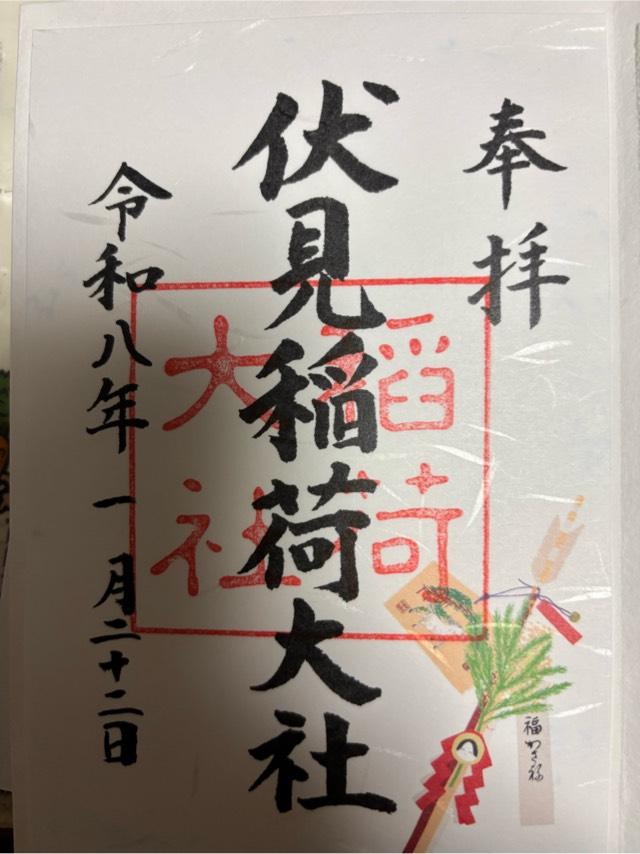 奉拝
伏見稲荷大社
稲荷大社
令和八年一月二十二日
福かさね